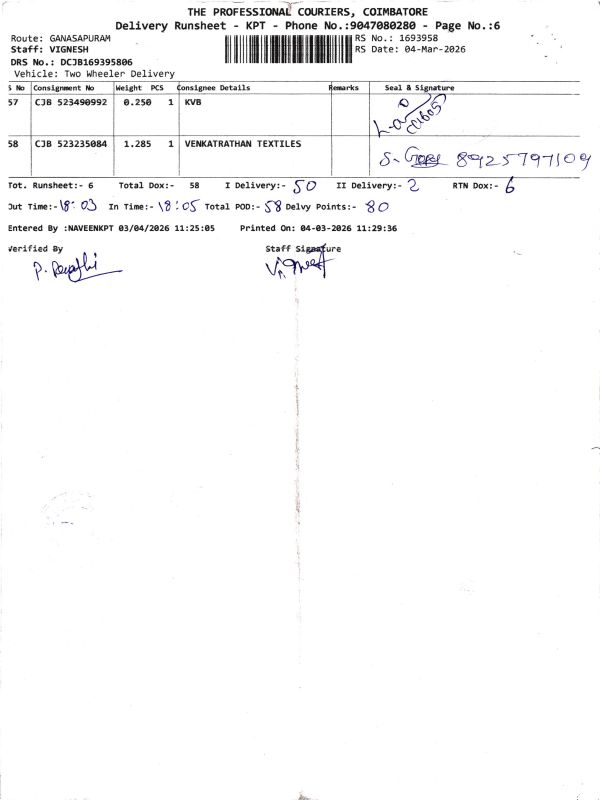 THE PROFESSIONAL COURIERS, COIMBATORE
Delivery Runsheet - KPT - Phone No.:9047080280 - Page No.:6
Route: GANASAPURAM RS No.: 1693958
Staff: VIGNESH RS Date: 04-Mar-2026
DRS No.: DCJB169395806
Vehicle: Two Wheeler Delivery
S No Consignment No Weight PCS Consignee Details Remarks Seal & Signature
57 CJB 523490992 0.250 1 KVB
58 CJB 523235084 1.285 1 VENKATRATHAN TEXTILES S. 8925797109
Tot. Runsheet:- 6 Total Dox:- 58 I Delivery:- 50 II Delivery:- 2 RTN Dox:- 6
Out Time:- 18:03 In Time:- 18:05 Total POD:- 58 Delvy Points:- 80
Entered By :NAVEENKPT 03/04/2026 11:25:05 Printed On: 04-03-2026 11:29:36
Verified By Staff Signature
P.